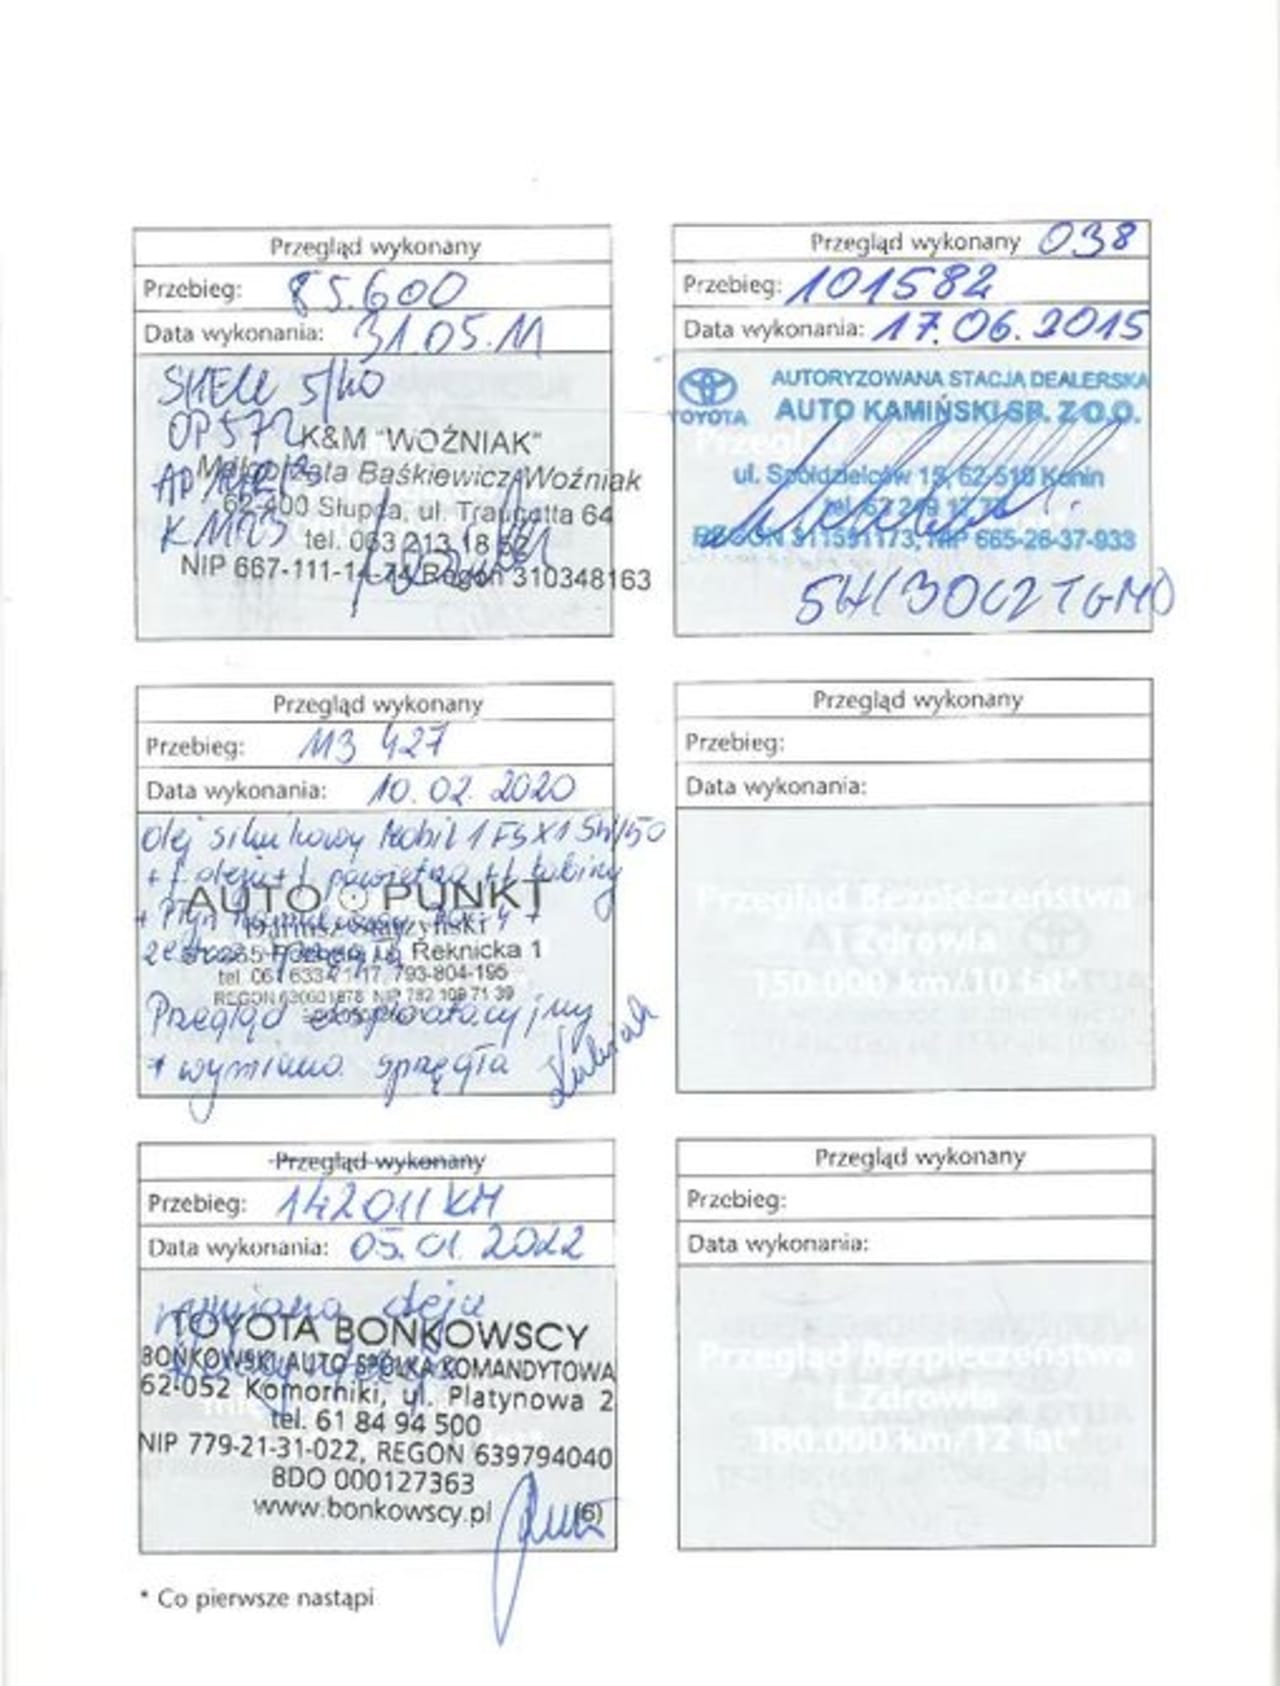 Przegląd wykonany
Przebieg: 85.600
Data wykonania: 31.05.11
SHELL 5/40
OP572
K&M "WOŹNIAK"
Małgorzata Baśkiewicz-Woźniak
62-400 Słupca, ul. Traugutta 64
K M123
tel. 063 213 18 52
NIP 667-111-14-74 Regon 310348163
Przegląd wykonany 038
Przebieg: 101582
Data wykonania: 17.06.2015
TOYOTA
AUTORYZOWANA STACJA DEALERSKA
AUTO KAMIŃSKI SP. Z O.O.
ul. Spółdzielców 15, 62-510 Konin
REGON 311551173, NIP 665-26-37-933
5W/30C2TGMO
Przegląd wykonany
Przebieg: 113 427
Data wykonania: 10.02.2020
Olej silnikowy Mobil 1 FS X1 5W/50
+ f. oleju + f. powietrza + f. kabiny
AUTO PUNKT
+ Płyn hamulcowy +
Reknicka 1
793-804-195
Przegląd eksploatacyjny
+ wymiana sprzęgła
Przegląd wykonany
Przebieg:
Data wykonania:
Przegląd Bezpieczeństwa
i Zdrowia
150.000 km/10 lat*
Przegląd wykonany
Przebieg: 142011 KM
Data wykonania: 05.01.2022
wymiana oleju
TOYOTA BOŃKOWSCY
BOŃKOWSKI AUTO SPÓŁKA KOMANDYTOWA
62-052 Komorniki, ul. Platynowa 2
tel. 61 84 94 500
NIP 779-21-31-022, REGON 639794040
BDO 000127363
www.bonkowscy.pl (6)
Przegląd wykonany
Przebieg:
Data wykonania:
Przegląd Bezpieczeństwa
i Zdrowia
180.000 km/12 lat*
* Co pierwsze nastąpi